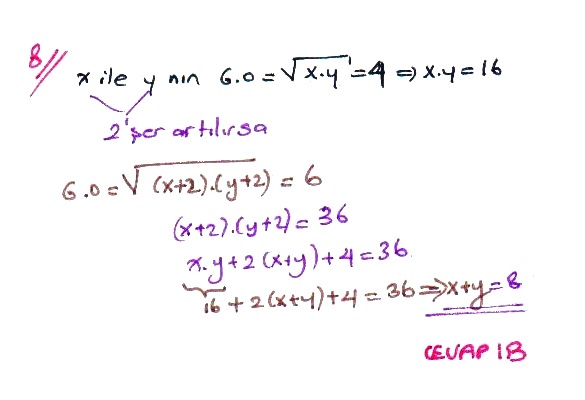 8// x ile y nin G.O = √x.y = 4 ⇒ x.y = 16
2'şer artılırsa
G.O = √(x+2).(y+2) = 6
(x+2).(y+2) = 36
x.y + 2(x+y) + 4 = 36
16 + 2(x+y) + 4 = 36 ⇒ x+y = 8
CEVAP : B